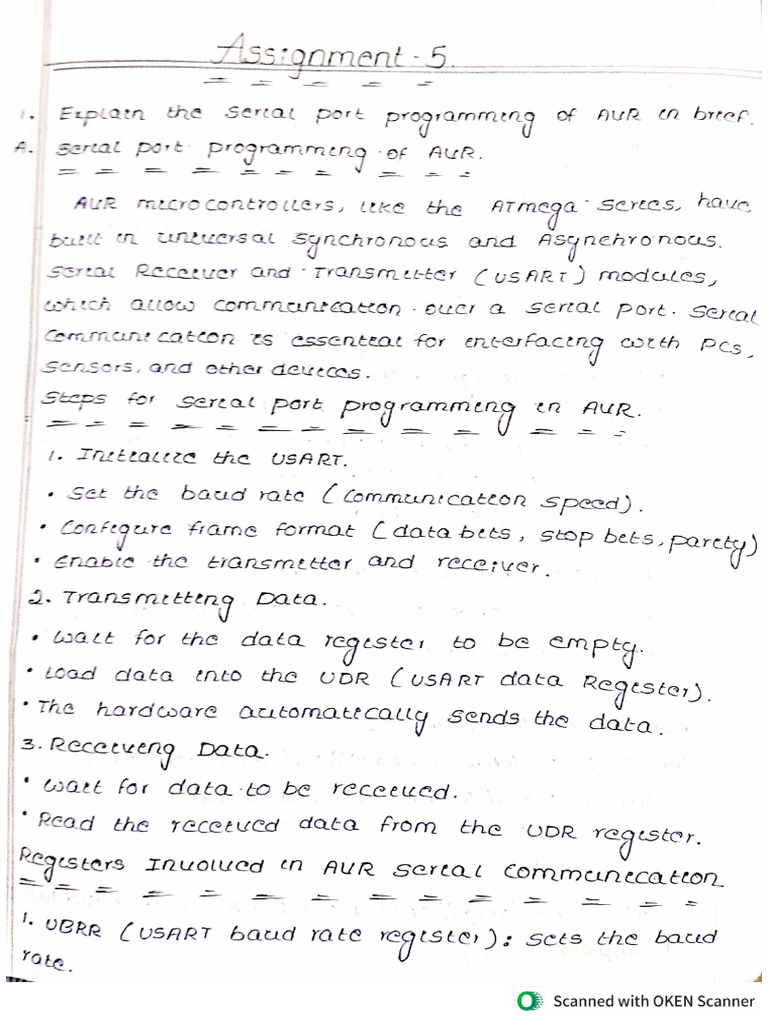 Assignment - 5.
1. Explain the serial port programming of AVR in brief.
A. Serial port programming of AVR.
AVR microcontrollers, like the ATmega series, have
built in universal synchronous and Asynchronous.
Serial Receiver and Transmitter (USART) modules,
which allow communication over a serial port. Serial
communication is essential for interfacing with PCs,
sensors, and other devices.
Steps for serial port programming in AVR.
1. Initialize the USART.
• Set the baud rate (communication speed).
• Configure frame format (data bits, stop bits, parity)
• Enable the transmitter and receiver.
2. Transmitting Data.
• Wait for the data register to be empty.
• Load data into the UDR (USART data Register).
• The hardware automatically sends the data.
3. Receiving Data.
• Wait for data to be received.
• Read the received data from the UDR register.
Registers Involved in AVR serial communication
1. UBRR (USART baud rate register): sets the baud
rate.
Scanned with OKEN Scanner